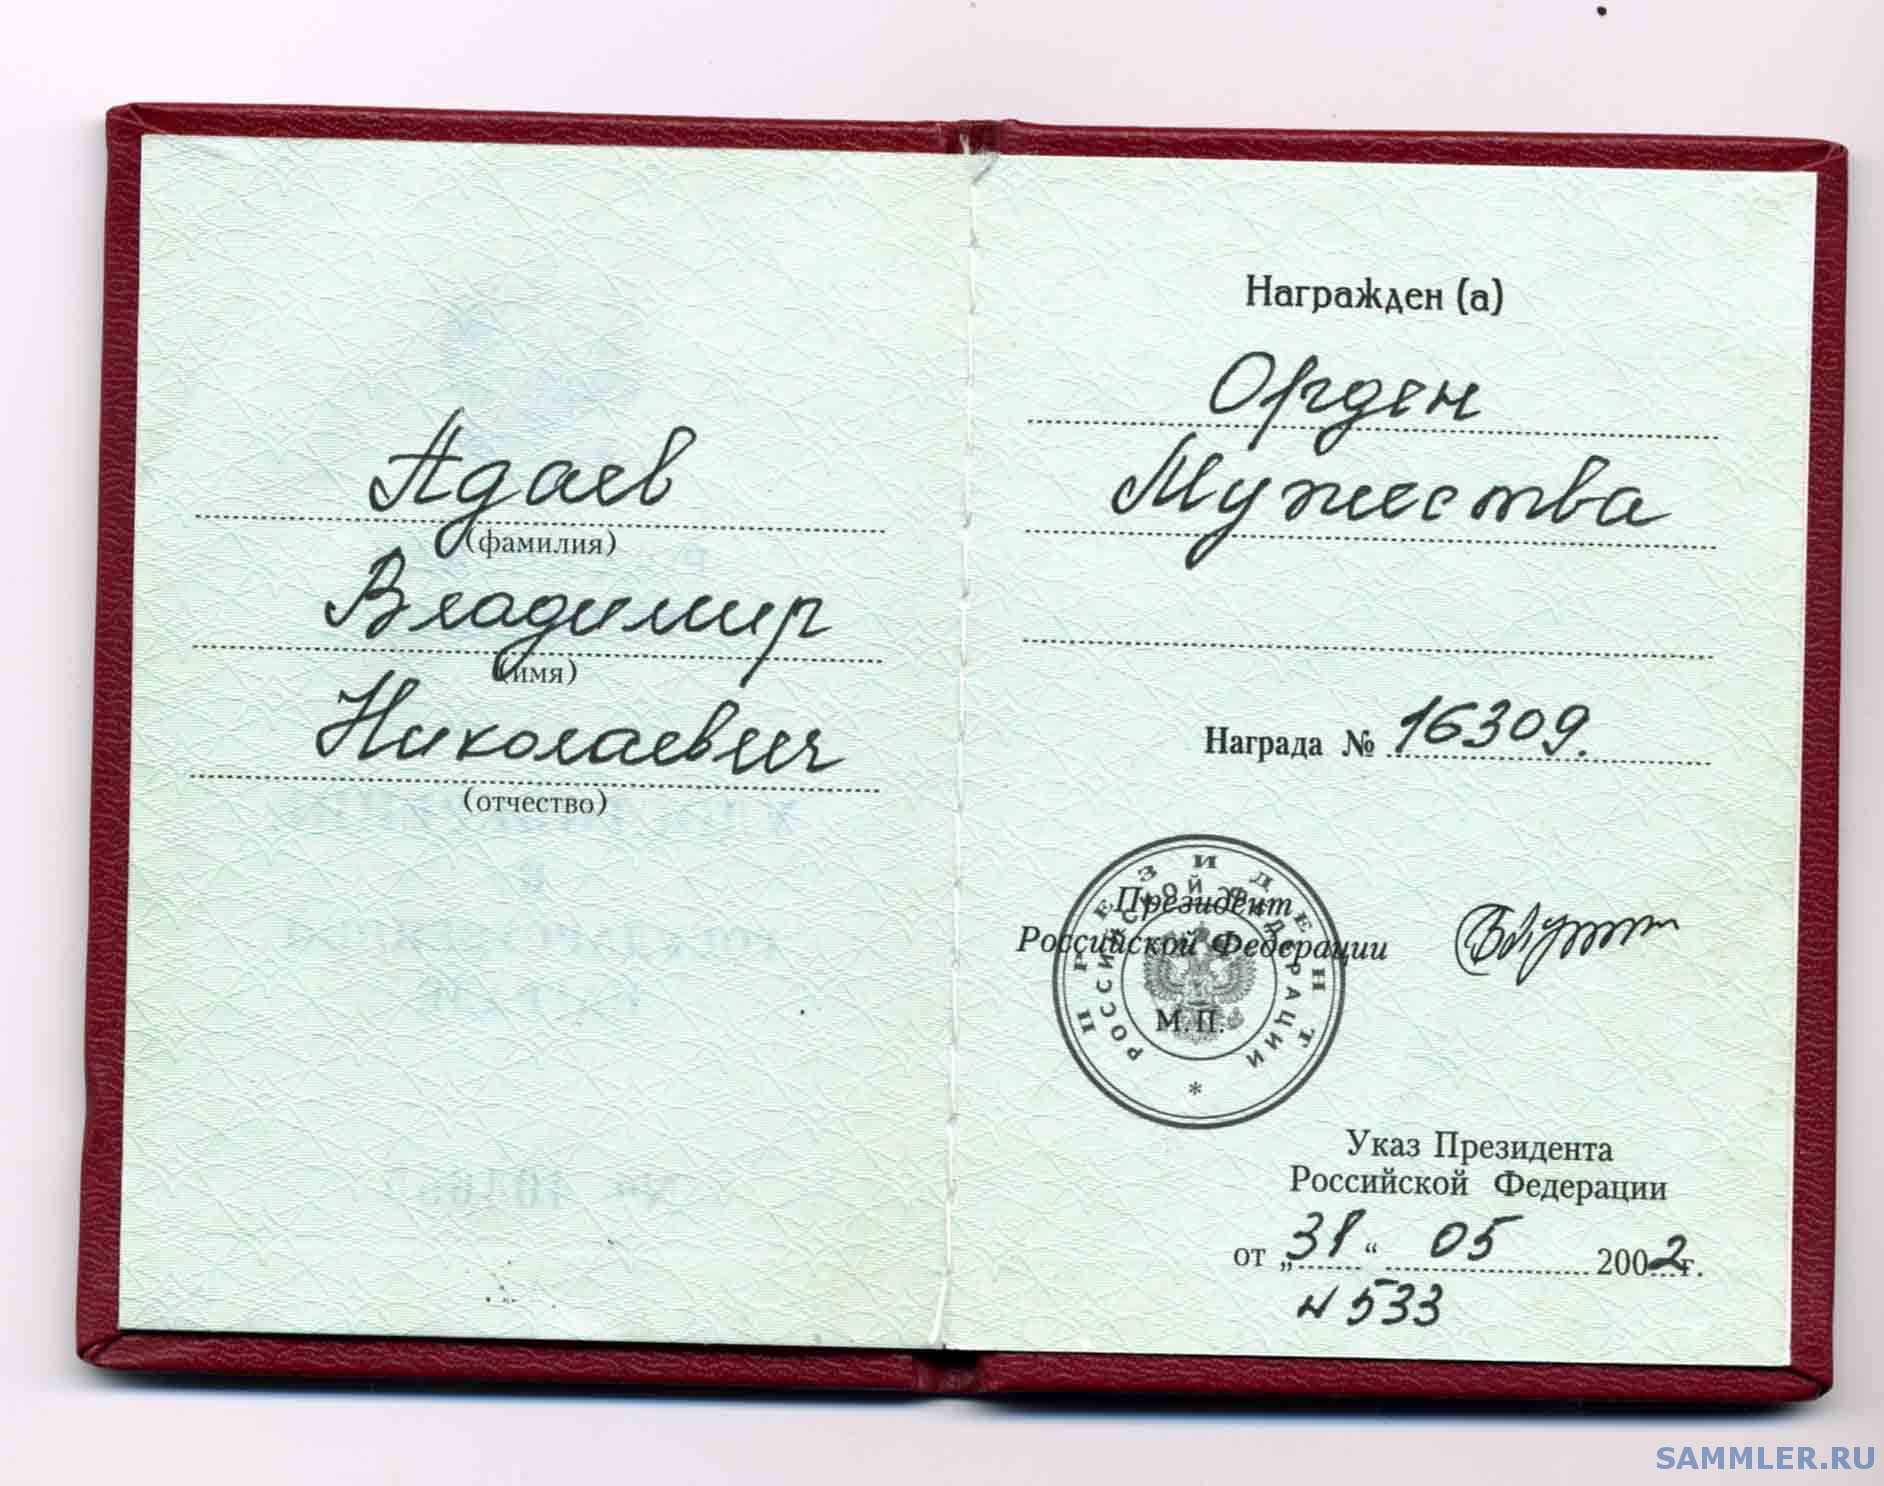 Адаев
(фамилия)
Владимир
(имя)
Николаевич
(отчество)
Награжден (а)
Орден
Мужества
Награда № 16309.
ПРЕЗИДЕНТ
РОССИЙСКОЙ ФЕДЕРАЦИИ
*
Президент
Российской Федерации
М.П.
Указ Президента
Российской Федерации
от „31“ 05 2002г.
N 533
SAMMLER.RU